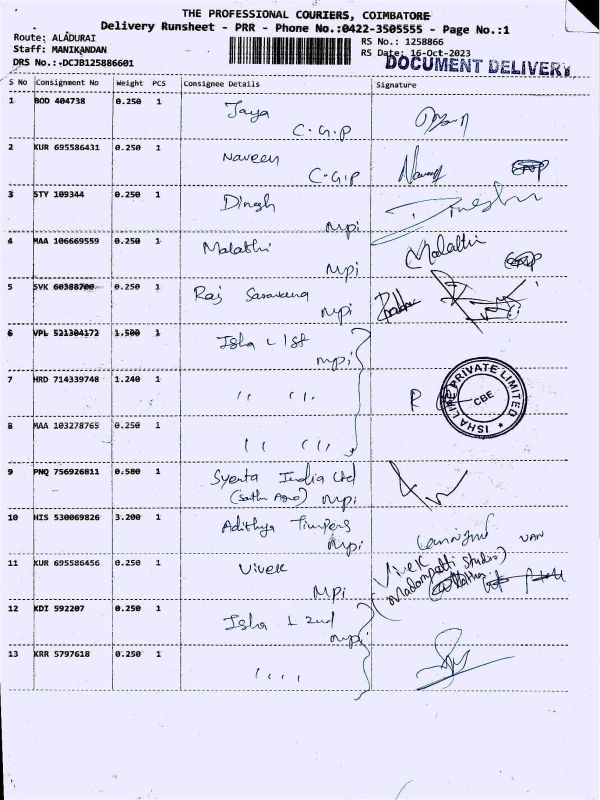 THE PROFESSIONAL COURIERS, COIMBATORE
Delivery Runsheet - PRR - Phone No.:0422-3505555 - Page No.:1
Route: ALADURAI
RS No.: 1258866
Staff: MANIKANDAN
RS Date: 16-Oct-2023
DRS No.:-DCJB125886601
DOCUMENT DELIVERY
S No Consignment No Weight PCS Consignee Details Signature
1 BOD 404738 0.250 1 Jaya
C.G.P
2 KUR 695586431 0.250 1 Naveen
C.G.P
3 STY 109344 0.250 1 Dinesh Dinesh
mpi
4 MAA 106669559 0.250 1 Malathi Malathi
mpi
5 SVK 60388700 0.250 1 Raj
mpi
6 VPL 521304172 1.500 1 Isha L 1st
mpi
7 HRD 714339748 1.240 1 " "
ISHA LIFE PRIVATE LIMITED
CBE
8 MAA 103278765 0.250 1 " "
9 PNQ 756926811 0.580 1 Syenta India Ltd
(Sathu Agro) mpi
10 HIS 530069826 3.200 1 Adithya Timpers
mpi
VAN
11 KUR 695586456 0.250 1 Vivek Vivek
MPi (Madampatti Studio)
12 KDI 592207 0.250 1 Isha L 2nd
mpi
13 KRR 5797618 0.250 1 " "